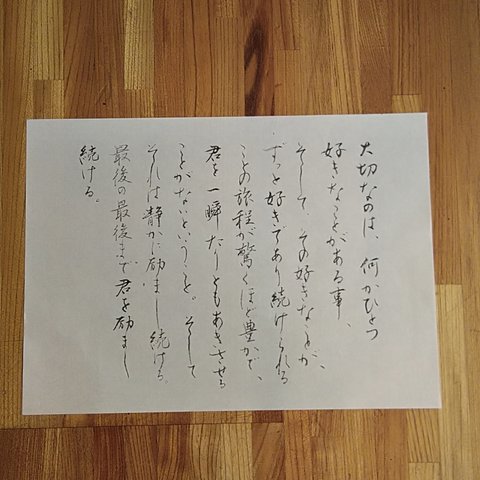 大切なのは、何かひとつ
好きなことがある事、
そして その好きなことが、
ずっと好きであり続けられる
ことの旅程が驚くほど豊かで、
君を一瞬たりともあきさせる
ことがないということ。そして
それは静かに励まし続ける。
最後の最後まで君を励まし
続ける。